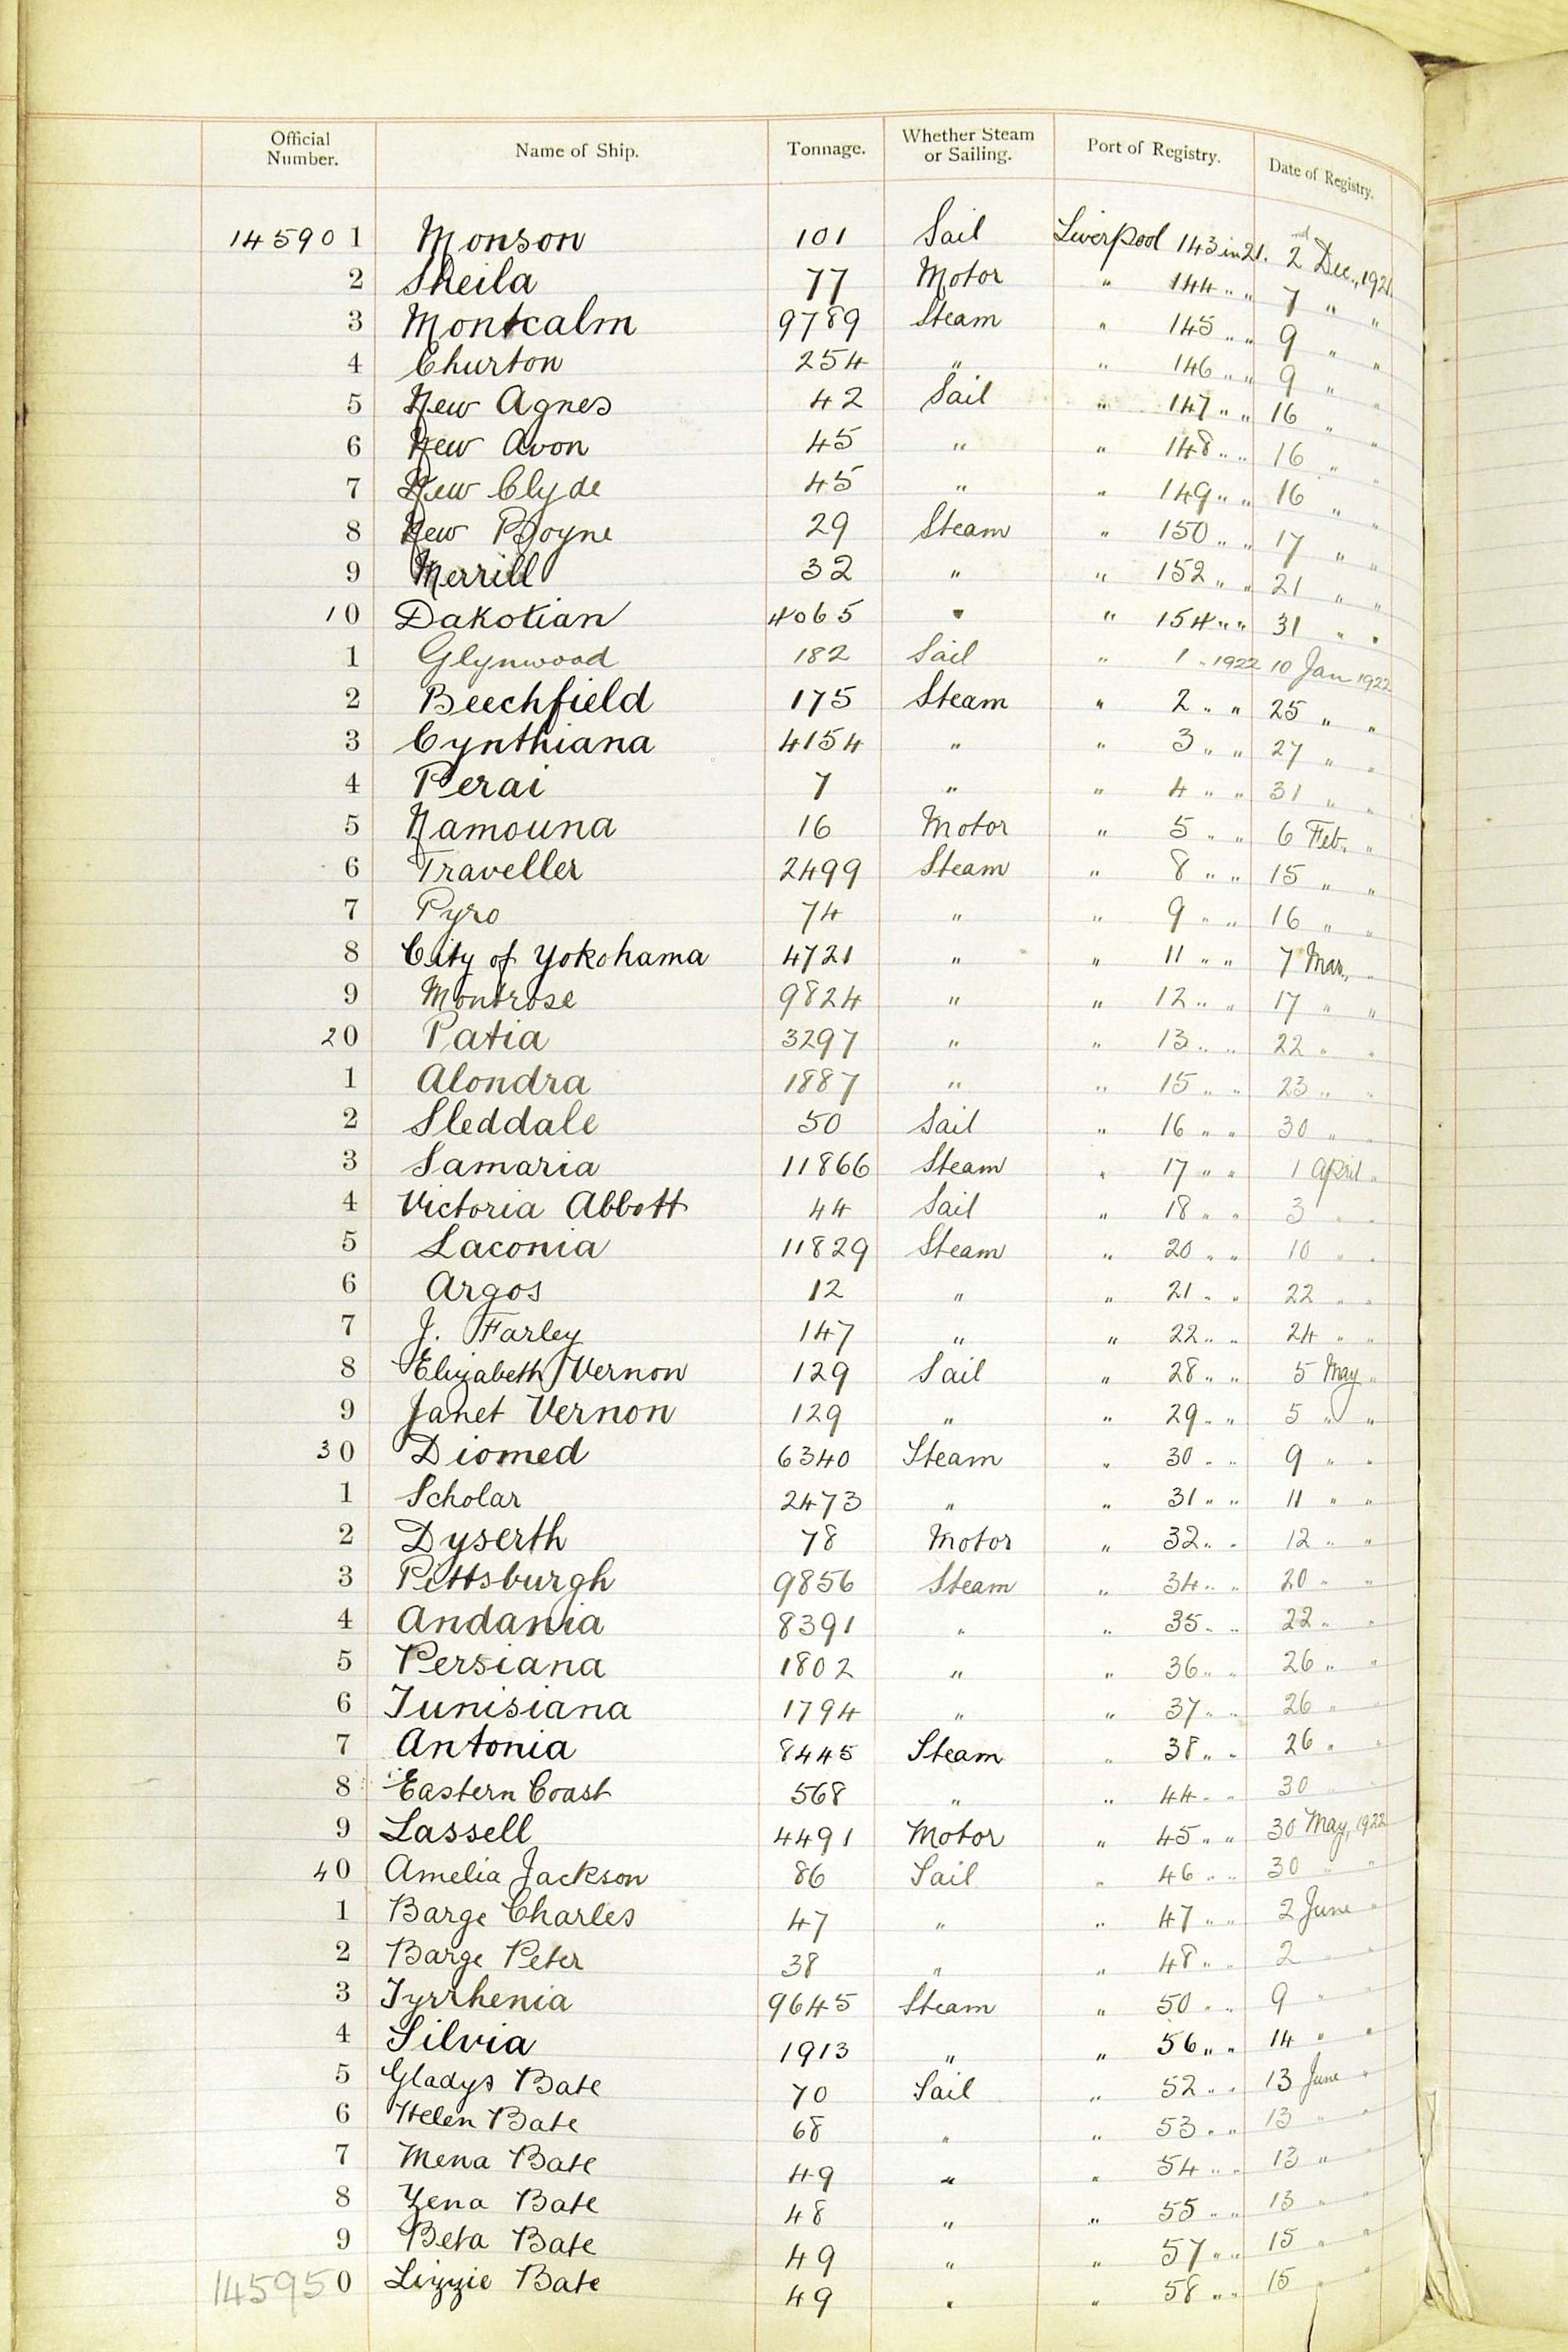 Official Number. Name of Ship. Tonnage. Whether Steam or Sailing. Port of Registry. Date of Registry.
145901 Monson 101 Sail Liverpool 143 in 21. 2nd Dec., 1921
2 Sheila 77 Motor " 144 " " 7 " "
3 Montcalm 9789 Steam " 145 " " 9 " "
4 Churton 254 " " 146 " " 9 " "
5 New Agnes 42 Sail " 147 " " 16 " "
6 New Avon 45 " " 148 " " 16 " "
7 New Clyde 45 " " 149 " " 16 " "
8 New Boyne 29 Steam " 150 " " 17 " "
9 Merrill 32 " " 152 " " 21 " "
10 Dakotian 4065 " " 154 " " 31 " "
1 Glynwood 182 Sail " 1 " 1922 10 Jan 1922
2 Beechfield 175 Steam " 2 " " 25 " "
3 Cynthiana 4154 " " 3 " " 27 " "
4 Perai 7 " " 4 " " 31 " "
5 Namouna 16 Motor " 5 " " 6 Feb. "
6 Traveller 2499 Steam " 8 " " 15 " "
7 Pyro 74 " " 9 " " 16 " "
8 City of Yokohama 4721 " " 11 " " 7 Mar. "
9 Montrose 9824 " " 12 " " 17 " "
20 Patia 3297 " " 13 " " 22 " "
1 Alondra 1887 " " 15 " " 23 " "
2 Sleddale 50 Sail " 16 " " 30 " "
3 Samaria 11866 Steam " 17 " " 1 April "
4 Victoria Abbott 44 Sail " 18 " " 3 " "
5 Laconia 11829 Steam " 20 " " 10 " "
6 Argos 12 " " 21 " " 22 " "
7 J. Farley 147 " " 22 " " 24 " "
8 Elizabeth Vernon 129 Sail " 28 " " 5 May "
9 Janet Vernon 129 " " 29 " " 5 " "
30 Diomed 6340 Steam " 30 " " 9 " "
1 Scholar 2473 " " 31 " " 11 " "
2 Dyserth 78 Motor " 32 " " 12 " "
3 Pittsburgh 9856 Steam " 34 " " 20 " "
4 Andania 8391 " " 35 " " 22 " "
5 Persiana 1802 " " 36 " " 26 " "
6 Tunisiana 1794 " " 37 " " 26 " "
7 Antonia 8445 Steam " 38 " " 26 " "
8 Eastern Coast 568 " " 44 " " 30 " "
9 Lassell 4491 Motor " 45 " " 30 May, 1922
40 Amelia Jackson 86 Sail " 46 " " 30 " "
1 Barge Charles 47 " " 47 " " 2 June "
2 Barge Peter 38 " " 48 " " 2 " "
3 Tyrrhenia 9645 Steam " 50 " " 9 " "
4 Silvia 1913 " " 56 " " 14 " "
5 Gladys Bate 70 Sail " 52 " " 13 June "
6 Helen Bate 68 " " 53 " " 13 " "
7 Mena Bate 49 " " 54 " " 13 " "
8 Zena Bate 48 " " 55 " " 13 " "
9 Beta Bate 49 " " 57 " " 15 " "
145950 Lizzie Bate 49 " " 58 " " 15 " "